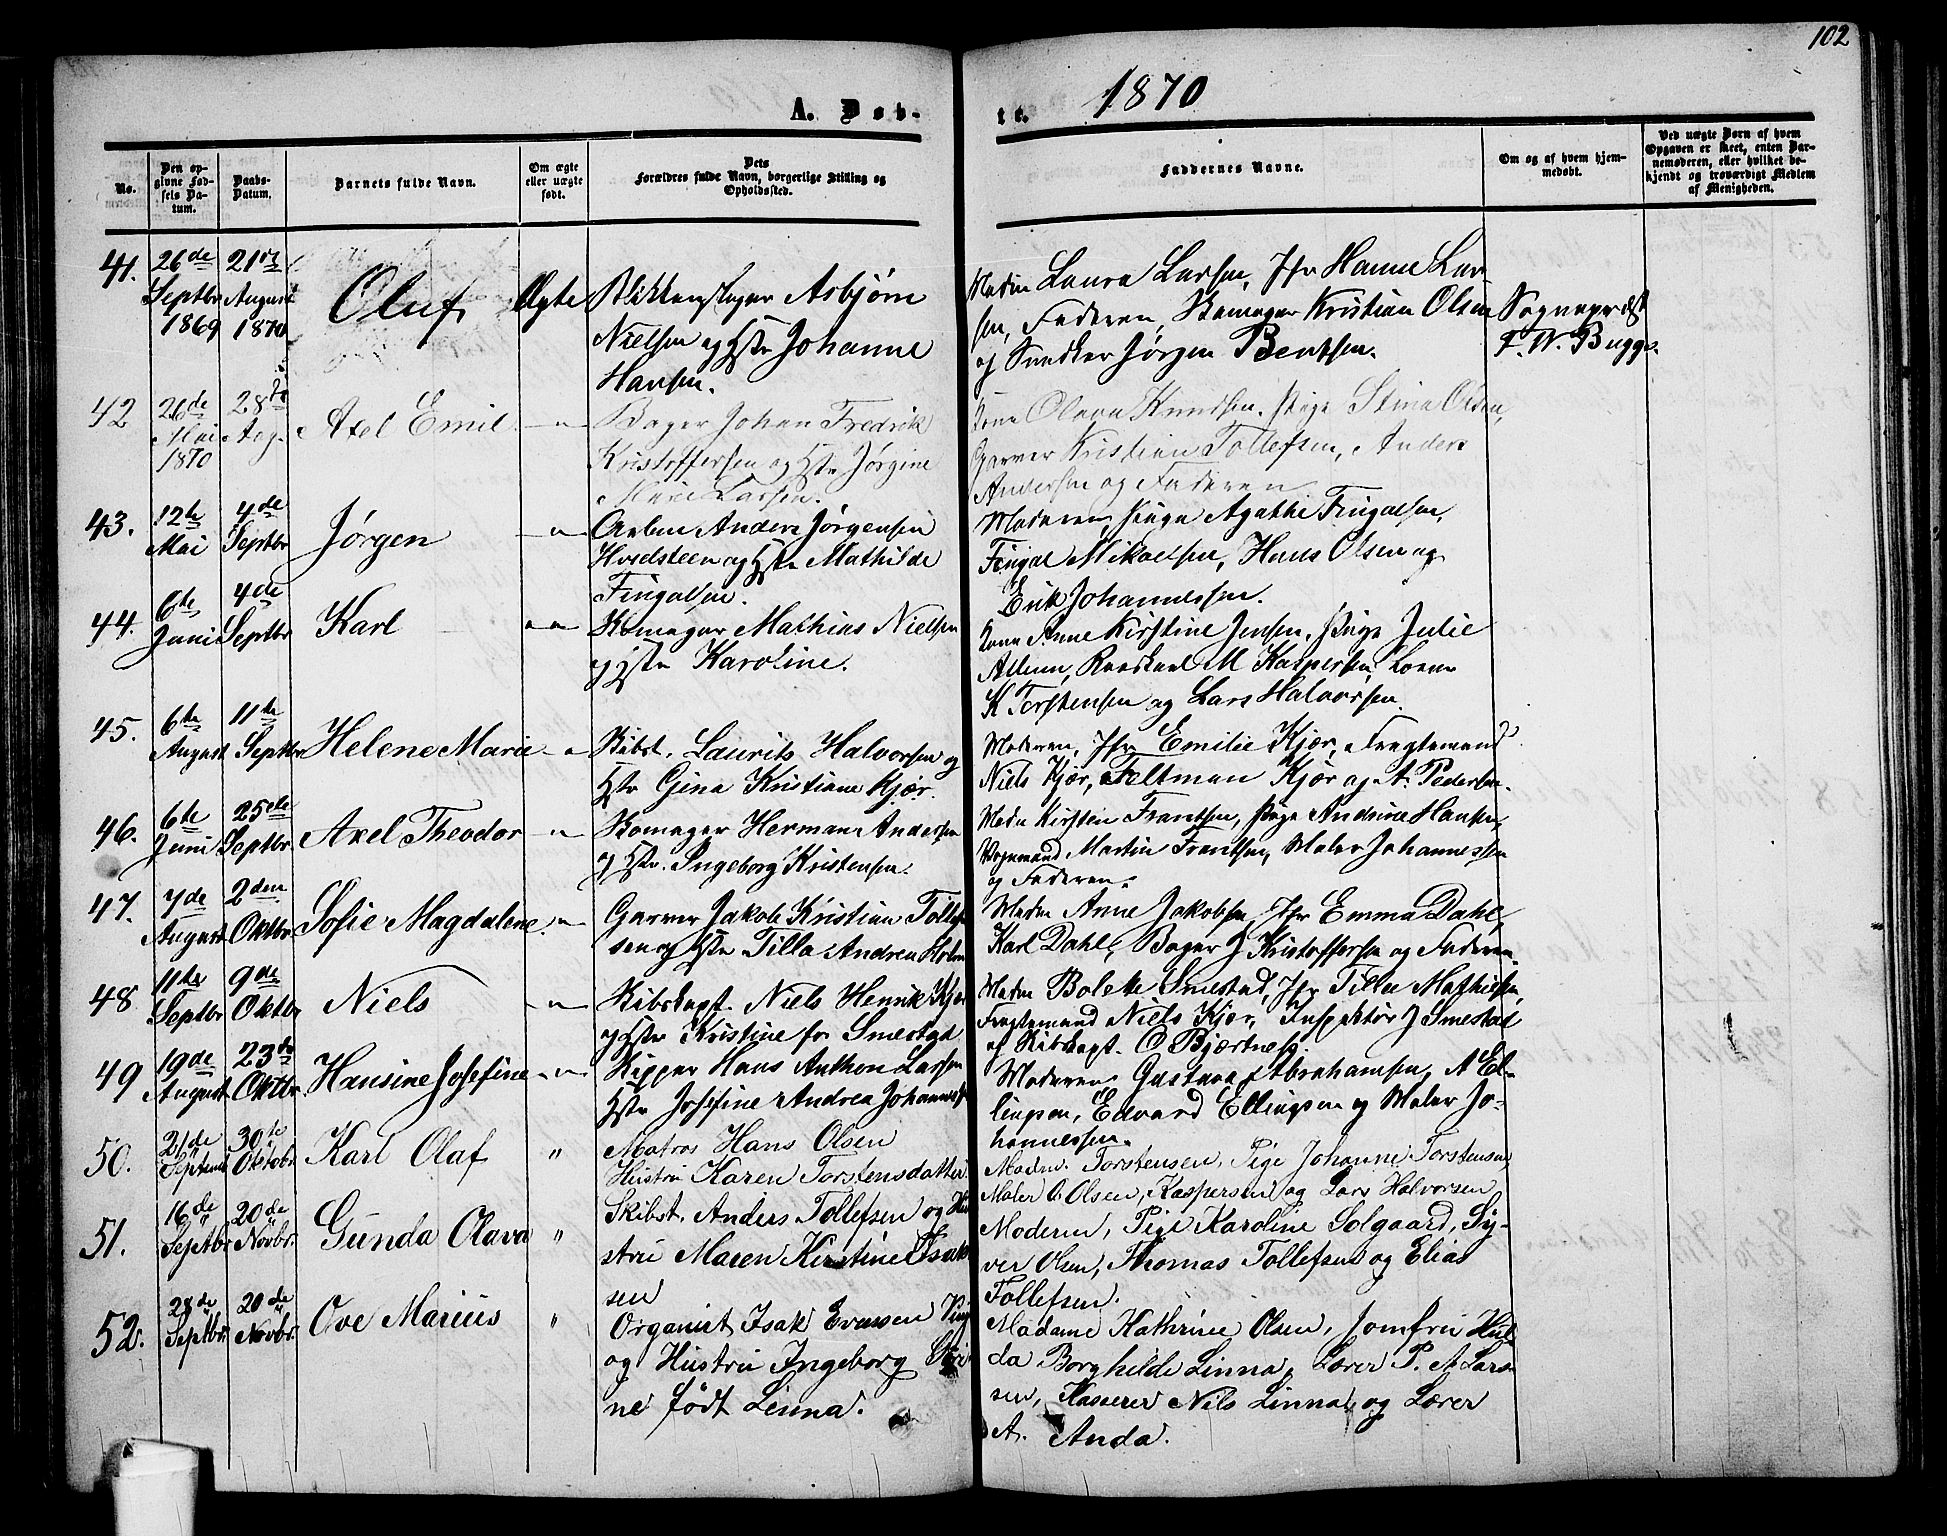 102
A. Døb-
te. 1870
No.
Den op-
givne Fød-
sels Da-
tum.
Daabs-
Datum.
Barnets fulde Navn.
Om ægte
eller uægte
født.
Dets
Forældres fulde Navn, borgerlige Stilling og
Opholdssted.
Faddernes Navne.
Om og af hvem hjem-
medøbt.
Ved uægte Børn af hvem
Opgaven er skeet, enten Bar-
nemoderen, eller hvilket be-
kjendt og troværdigt Medlem
af Menigheden.
41.
26de
Septbr
1869
21de
August
1870
Oluf
Ægte
Blikkenslager Asbjørn
Nielsen og Hstr Johanne
Hansen.
Madm Laura Larsen, Jfr Hanne Lar
sen, Faderen, Skomager Kristian Olsen
og Snedker Jørgen Bentsen.
Sognepræst
F. W. Bugge.
42
26de
Mai
1870
28de
Aug.
Axel Emil
— " —
Bager Johan Fredrik
Kristoffersen og Hstr Jørgine
Marie Larsen.
Kone Olava Knudsen, Pige Stina Olsen,
Garver Kristian Tollefsen, Anders
Andersen og Faderen
43.
12te
Mai
4de
Septbr
Jørgen
— " —
Arbm Anders Jørgensen
Hvidsteen og Hstr Mathilde
Fingalsen.
Moderen, Pige Agathe Fingalsen,
Fingal Mikaelsen, Hans Olsen og
Erik Johannessen.
44.
6te
Juni
4de
Septbr
Karl
— " —
Skomager Mathias Nielsen
og Hstr Karoline.
Kone Anne Kirstine Jensen, Pige Julie
M Kaspersen,
K Torstensen og Lars Halvorsen.
45.
6te
August
11te
Septbr
Helene Marie
— " —
Skibst. Laurits Halvorsen og
Hstr Gina Kristiane Kjær.
Moderen, Jfr Emilie Kjær, Fragtemand
Niels Kjær, Feltman Kjær og A. Pedersen.
46.
6te
Juni
25de
Septbr.
Axel Theodor
— " —
Skomager Herman Andersen
og Hstr. Ingeborg Kristensen.
Madm Kirsten Frantsen, Pige Andrine Hansen,
Vognmand Martin Frantsen, Maler Johannessen
og Faderen.
47.
7de
August
2den
Oktbr
Sofie Magdalene.
— " —
Garver Jakob Kristian Tollef
sen og Hstr Tilla Andrea Holm
Madm Anne Jakobsen, Jfr Emma Dahl,
Karl Dahl, Bager J Kristoffersen og Faderen.
48
11te
Septbr
9de
Oktbr
Niels
— " —
Skibskapt. Niels Henrik Kjær
og Hstr Kristine fr Smestad
Madm Bolette Smestad, Jfr Tilla Mathisen,
Fragtemand Niels Kjær, Inspektør J Smestad
og Skibskapt. O Bjærtnes.
49
19de
August
23de
Oktbr.
Hansine Josefine
— " —
Skipper Hans Anthon Larsen
Hstr Josefine Andrea Johannes
Moderen, Gustava Abrahamsen, A El-
lingsen, Edvard Ellingsen og Maler Jo-
hannessen.
50.
21de
Septemb
30te
Oktobr.
Karl Olaf
"
Matros Hans Olsen
Hustru Karen Torstensdatter
Madm. Torstensen, Pige Johanne Torstensen,
Maler O. Olsen, Kaspersen og Lars Halvorsen
51.
16de
Septbr
20de
Novbr.
Gunda Olava
"
Skibst. Anders Tollefsen og Hu
stru Maren Kirstine Isak
sen
Moderen, Pige Karoline Solgaard, Sy-
ver Olsen, Thomas Tollefsen og Elias
Tollefsen.
52.
28de
Septbr.
20de
Novbr.
Ove Marius
"
Organist Isak Evensen
og Hustru Ingeborg
ne født Linna.
Madame Kathrine Olsen, Jomfru Hul
da Borghilde Linna, Lærer P. A Lars
sen, Kasserer Nils Linna, og Lærer
A. Anda.